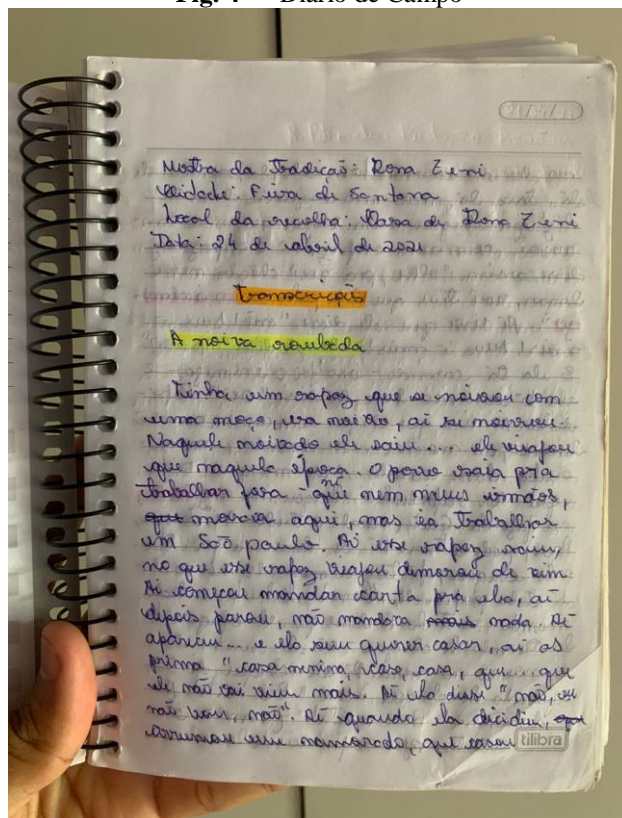 Fig. 4 Diário de Campo
Mostra da Tradição: Dona Zeni
Cidade: Feira de Santana
Local da recolha: Casa de Dona Zeni
Data: 24 de abril de 2021
Transcrição
A noiva roubada
Tinha um rapaz que se noivou com
uma moça, era noivo, aí se noivou.
Naquele noivado ele saiu... ele viajou
que naquela época. O povo saia pra
trabalhar fora - que ni nem meus irmãos,
morava aqui, mas ia trabalhar
em São paulo. Aí esse rapaz saiu,
no que esse rapaz viajou demorou de vim
Aí começou mandar carta pra ela, aí
depois parou, não mandava mais nada. Aí
apareceu... e ela sem querer casar, aí as
prima "casa menina, casa, casa, que.. que
ele não vai vim mais. Aí ela disse "não, eu
não vou, não". Aí quando ela decidiu,
arrumou um namorado, que casou
tilibra